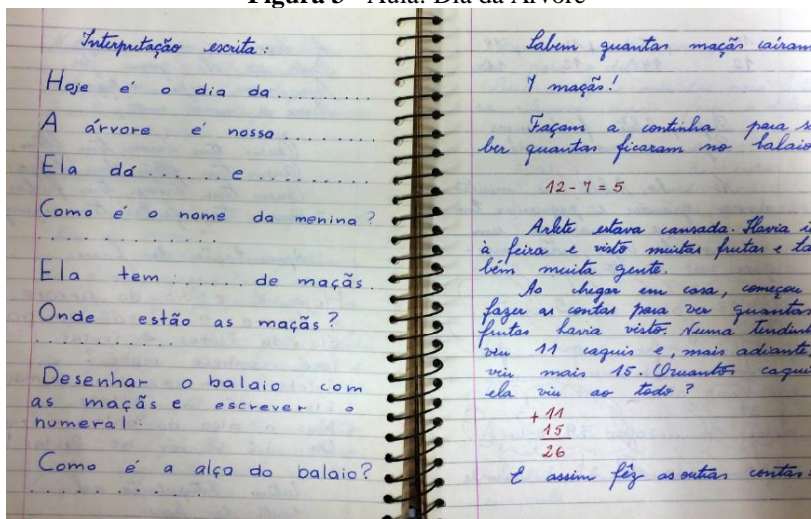 Figura 3 - Aula: Dia da Árvore
Interpretação escrita:
Hoje é o dia da..........
A árvore é nossa..........
Ela dá...... e..........
Como é o nome da menina?
.............
Ela tem...... de maçãs.
Onde estão as maçãs?
.............
Desenhar o balaio com
as maçãs e escrever o
numeral.
Como é a alça do balaio?
.............
Sabem quantas maçãs caíram
7 maçãs!
Façam a continha para s
ber quantas ficaram no balaio
12 - 7 = 5
Arlete estava cansada. Havia i
à feira e visto muitas frutas e ta
bém muita gente.
Ao chegar em casa, começou
fazer as contas para ver quantas
frutas havia visto. Numa tendinha
viu 11 caquis e, mais adiante,
viu mais 15. Quantos caqui
ela viu ao todo?
+ 11
15
26
E assim fêz as outras contas.